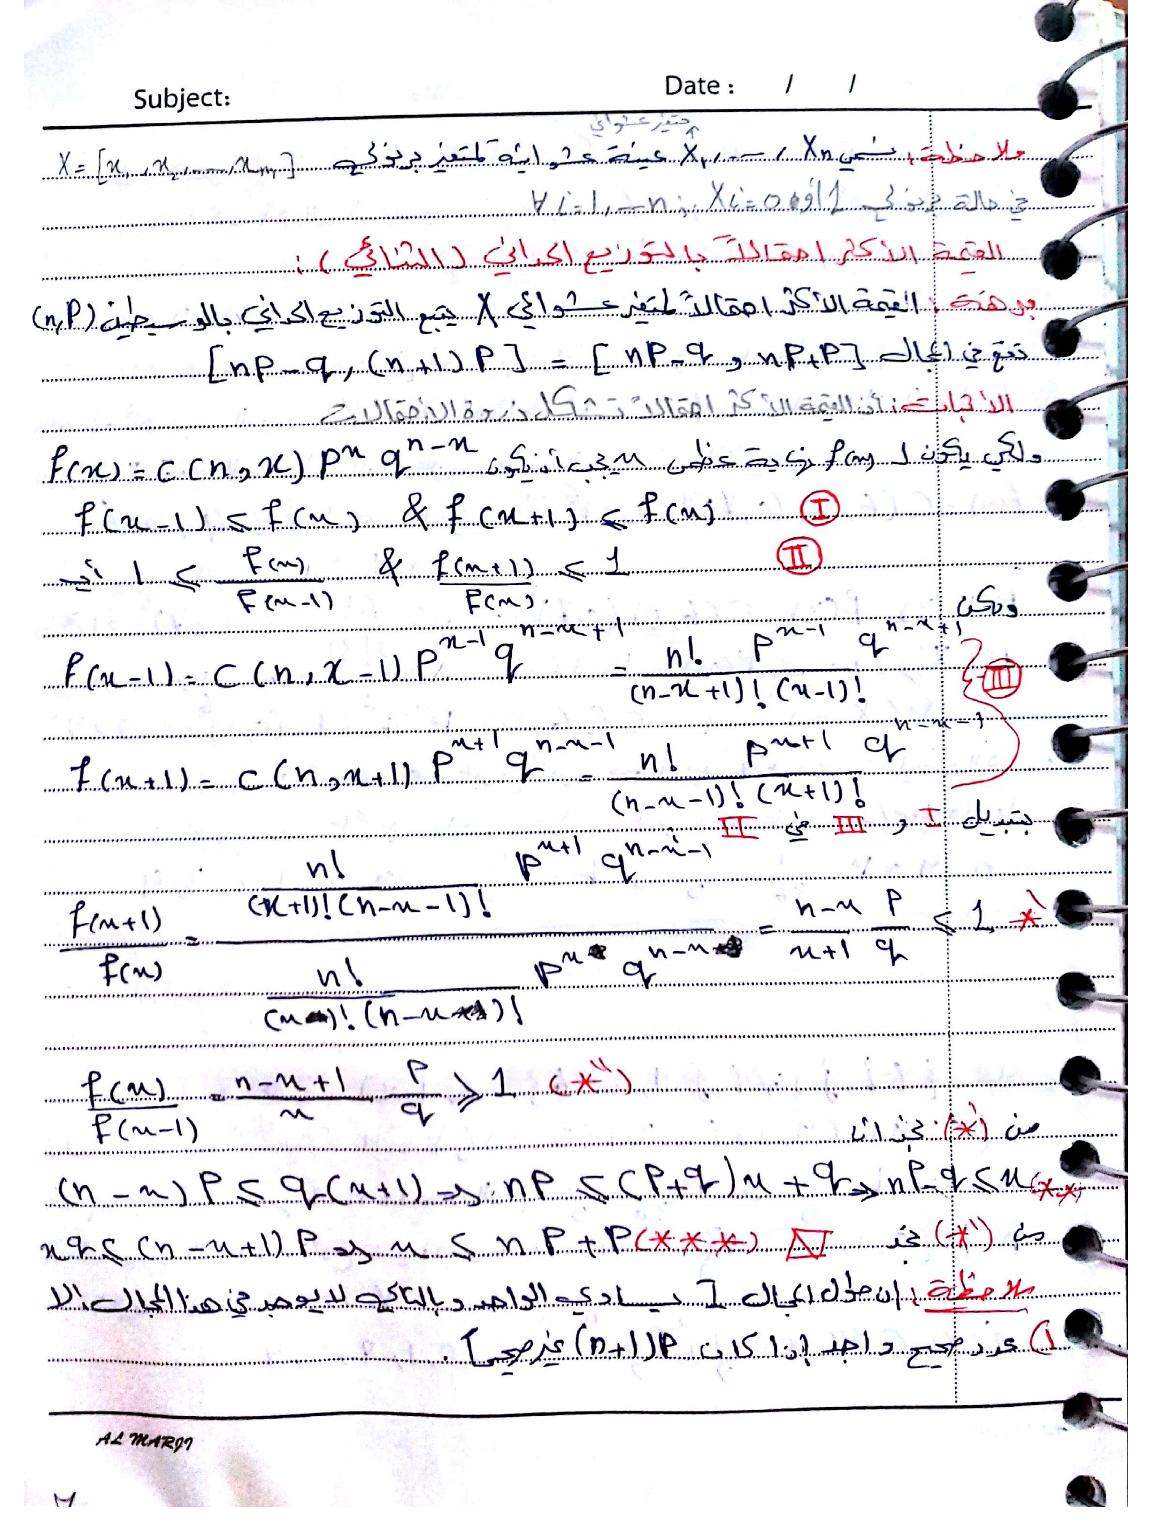 Subject:
Date : / /
متغير عشوائي
ملاحظة: نسمي X₁, ... , Xn عينة عشوائية لمتغير برنولي X = [x₁, x₂, ..., xn]
في حالة برنولي ∀ i=1, ...n ; Xi = 0 أو 1
القيمة الأكثر احتمالاً بالتوزيع الحداني (الثنائي) :
مبرهنة: القيمة الأكثر احتمالاً لمتغير عشوائي X يتبع التوزيع الحداني بالوسيطين (n,P)
تقع في المجال [nP-q, (n+1)P] = [nP-q و nP+P]
الاثبات: أن القيمة الأكثر احتمالاً تشكل ذروة الاحتمالات
ولكي يكون لـ f(x) نهاية عظمى x يجب أن يكون f(x) = C(n,x) P^x q^{n-x}
f(x-1) ≤ f(x) & f(x+1) ≤ f(x) (I)
أي 1 ≤ f(x)/f(x-1) & f(x+1)/f(x) ≤ 1 (II)
ولكن
f(x-1) = C(n,x-1) P^{x-1} q^{n-x+1} = n! P^{x-1} q^{n-x+1} / (n-x+1)! (x-1)! (III)
f(x+1) = C(n,x+1) P^{x+1} q^{n-x-1} = n! P^{x+1} q^{n-x-1} / (n-x-1)! (x+1)!
بتبديل I و III في II
f(x+1)/f(x) = [n!/(x+1)!(n-x-1)! P^{x+1} q^{n-x-1}] / [n!/(x)!(n-x)! P^x q^{n-x}] = n-x/x+1 P/q ≤ 1 *'
f(x)/f(x-1) = n-x+1/x P/q ≥ 1 (*'')
من (*') نجد أن
(n-x)P ≤ q(x+1) ⇒ nP ≤ (P+q)x + q ⇒ nP-q ≤ x (**)
من (*'') نجد xq ≤ (n-x+1)P ⇒ x ≤ nP+P (***)
ملاحظة: إن طول المجال I يساوي الواحد وبالتالي لا يوجد في هذا المجال إلا
1) عدد صحيح واحد [إذا كان (n+1)P غير صحيح].
AL MARJI